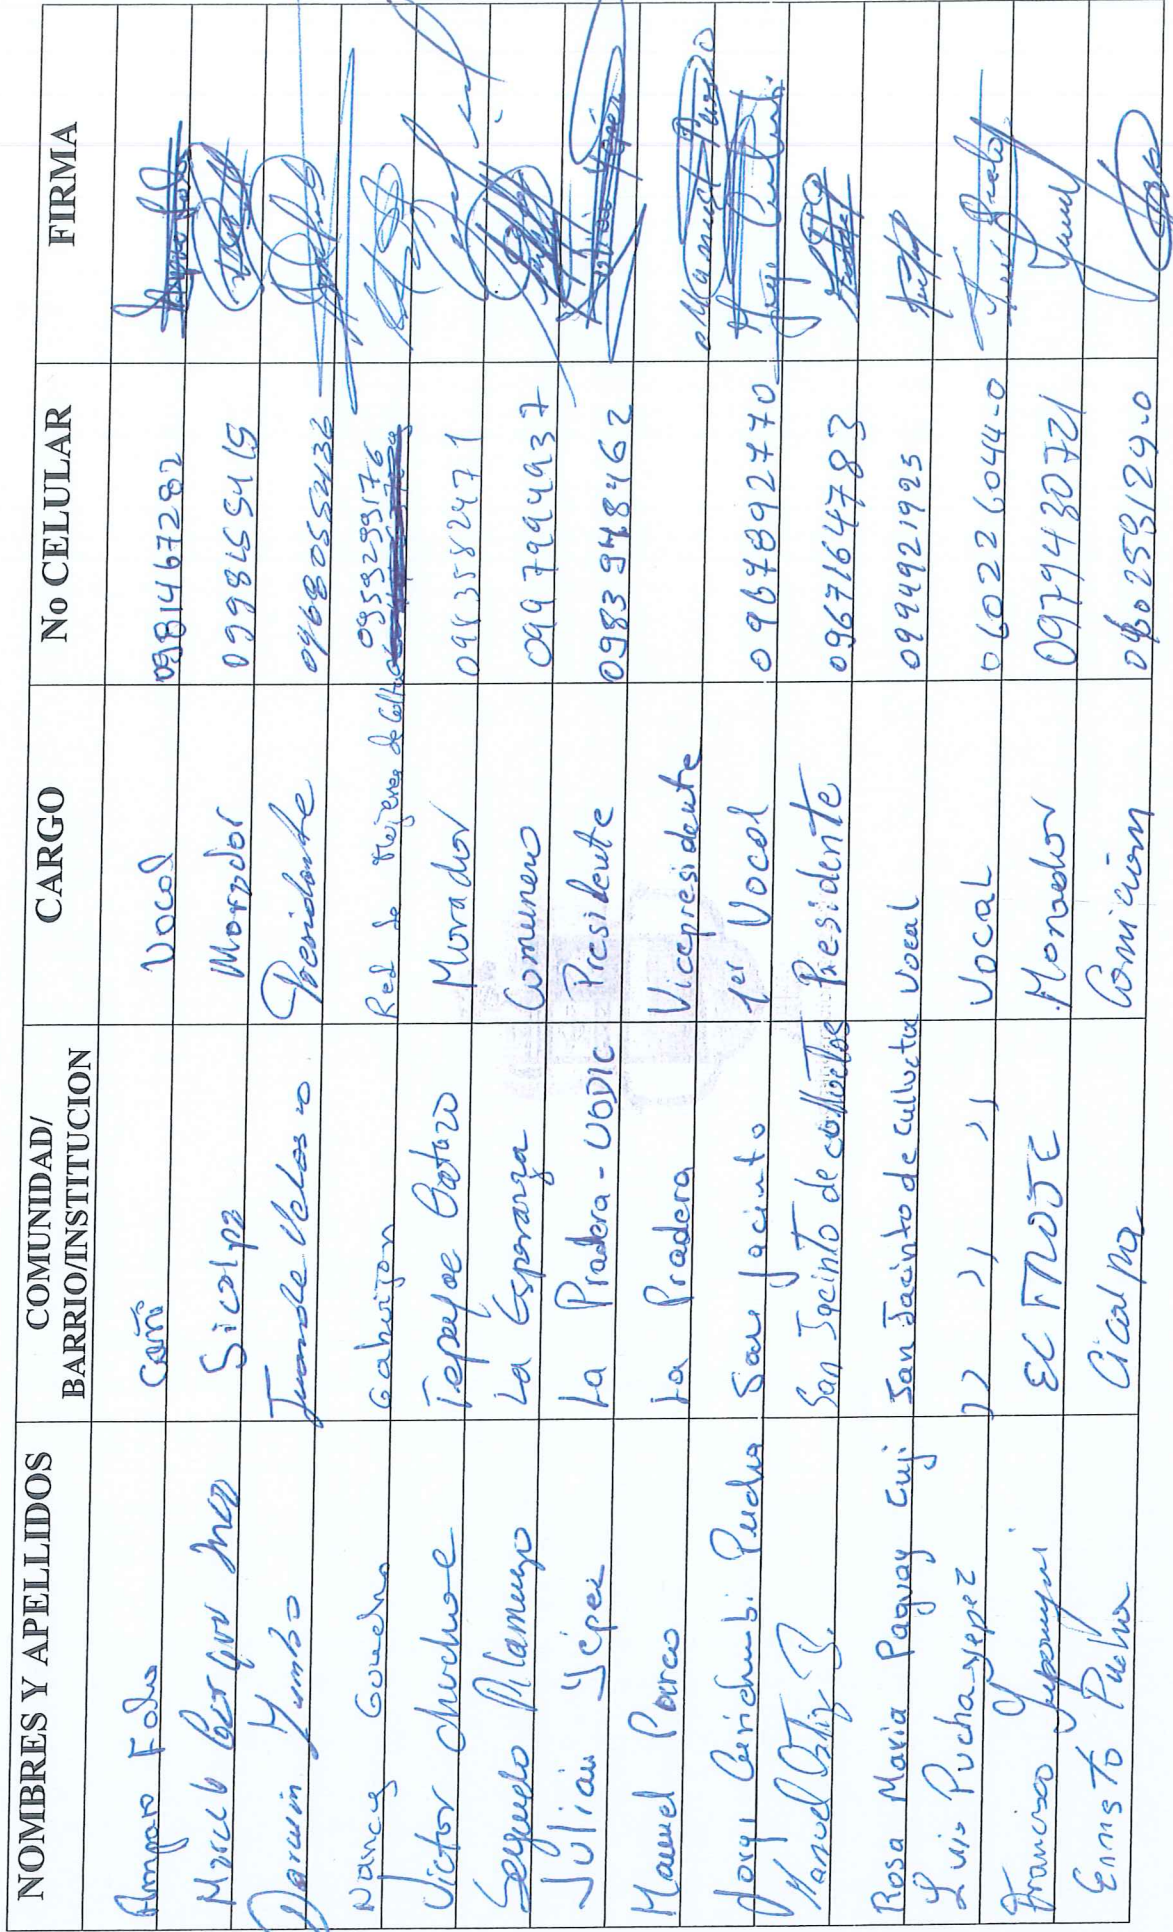 NOMBRES Y APELLIDOS COMUNIDAD/ BARRIO/INSTITUCION CARGO No CELULAR FIRMA
Amparo Vocal 0981467282
Sicalpa Morador 0998155415
Darwin Yumbo Juan de Velasco Presidente 0968055436
Nancy Guacho Gahuijon Red de Mujeres de Colta 0959299176
Victor Chuchoe Tepeyac Gatazo Morador 0983582471
Segundo Pilamunga La Esperanza Comunero 0997994937
Julian Yépez La Pradera-UODIC Presidente 0983978462
Manuel Parco La Pradera Vicepresidente Manuel Parco
Jorge Curichumbi Pucha San Jacinto 1er Vocal 0967892770
Manuel Ortiz San Jacinto de Presidente 0967164783
Rosa Maria Paguay Cuji San Jacinto de Culluctus vocal 0994921925
Luis Pucha yepez ,, ,, ,, ,, Vocal 060226044-0
Francisco Yupanqui EL TROJE Morador 0979430721
Ernesto Pucha Cicalpa Comicion